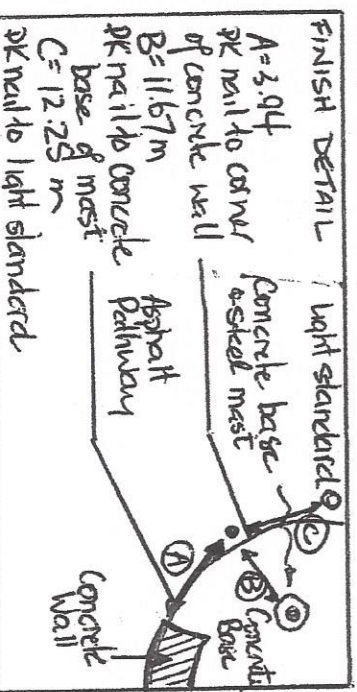 FINISH DETAIL
A=3.94
PK nail to corner
of concrete wall
B=11.67m
PK nail to concrete
base of mast
C=12.25 m
PK nail to light standard
light standard
Concrete base
& steel mast
Asphalt
Pathway
A
B
C
Concrete
Base
Concrete
Wall